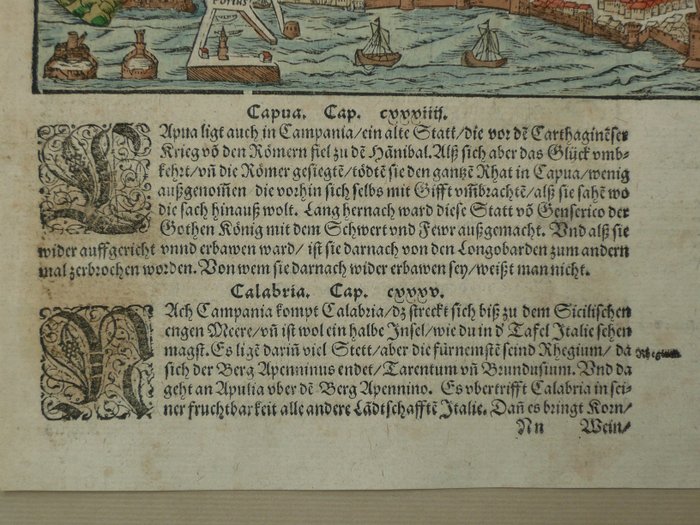 Portus
Capua. Cap. cxxxiiij.
CApua ligt auch in Campania/ein alte Statt/die vor dē Carthaginēser
Krieg vō den Römern fiel zu dē Hānibal. Alß sich aber das Glück vmb⸗
kehrt/vn̄ die Römer gesiegtē/tödtē sie den gantzē Rhat in Capua/wenig
außgenom̄en die vorhin sich selbs mit Gifft vm̄brachtē/alß sie sahē wo
die sach hinauß wolt. Lang hernach ward diese Statt vō Genserico der
Gothen König mit dem Schwert vnd Fewr außgemacht. Vnd alß sie
wider auffgericht vnnd erbawen ward/ ist sie darnach von den Longobarden zum andern
mal zerbrochen worden. Von wem sie darnach wider erbawen sey/weißt man nicht.
Calabria. Cap. cxxxv.
NAch Campania kompt Calabria/dz streckt sich biß zu dem Sicilischen
engen Meere/vn̄ ist wol ein halbe Insel/wie du in d' Tafel Italie sehen
magst. Es ligē darin̄ viel Stett/aber die fürnemstē seind Rhegium/ da
Rhegium
sich der Berg Apenninus endet/Tarentum vn̄ Brundusium. Vnd da
geht an Apulia vber dē Berg Apennino. Es vbertrifft Calabria in sei⸗
ner fruchtbarkeit alle andere Lādtschafftē Italie. Dan̄ es bringt Korn/
Nn Wein/